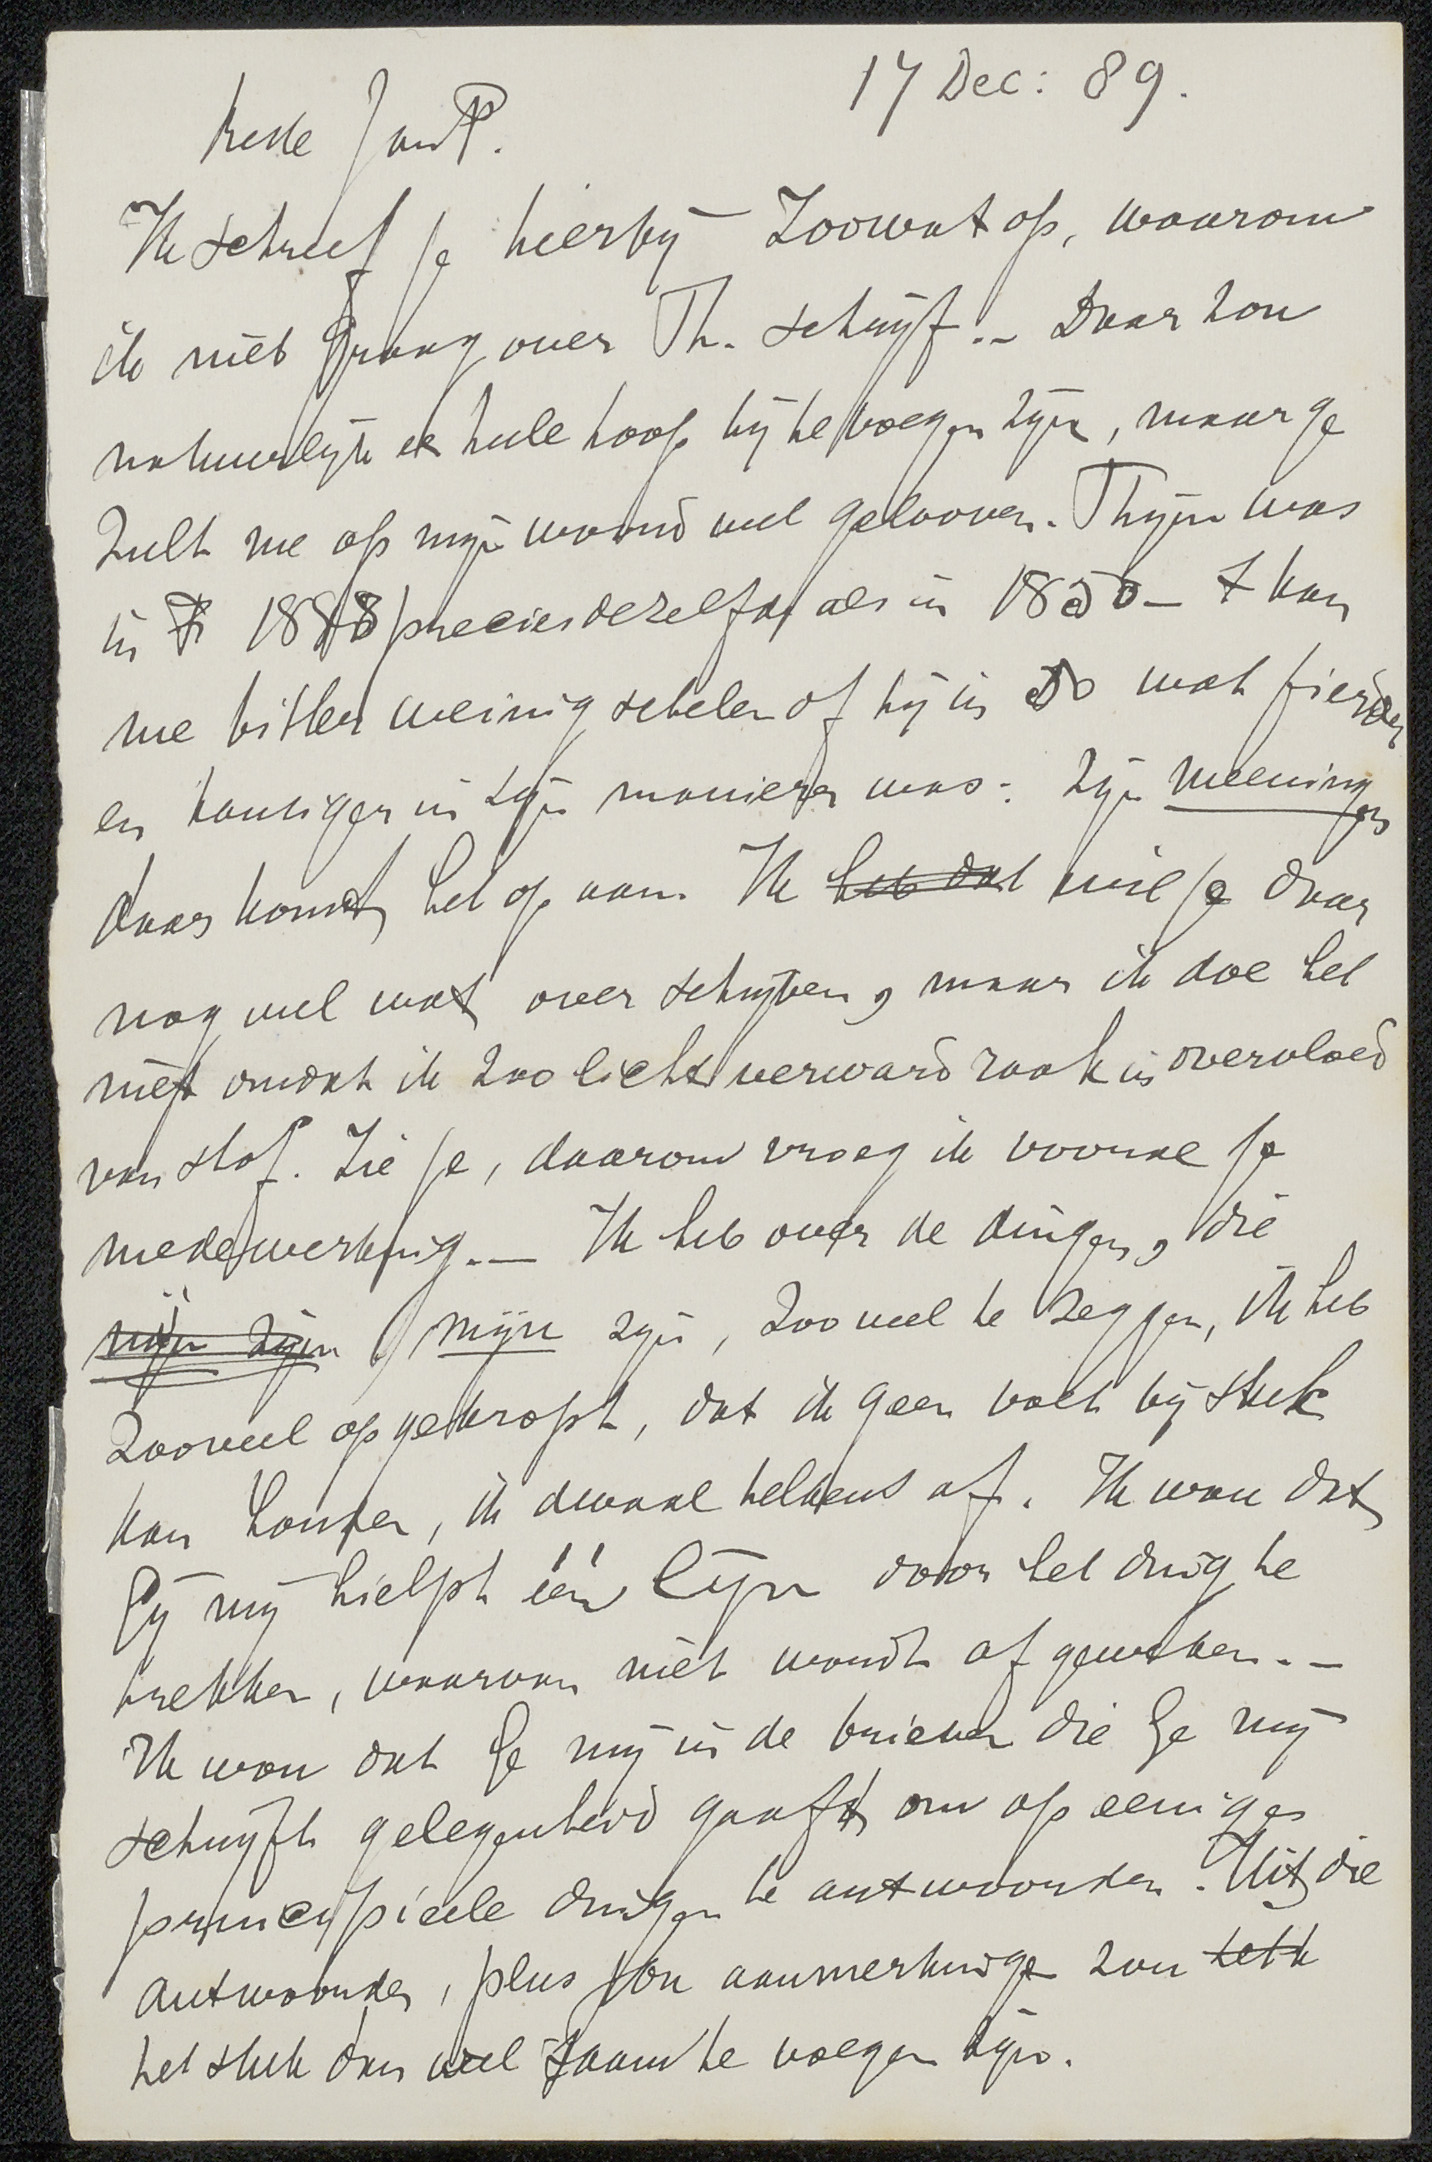 17 Dec: 89.
beste Jan P.
Ik schreef je hierbij zoowat op, waarom
ik niet graag over Th. schrijf. – Daar zou
natuurlijk een heele hoop bij te voegen zijn, maar je
zult me op mijn woord wel gelooven. Thijm was
in 1888 precies dezelfde als in 1850 – 't kan
me bitter weinig schelen of hij in 50 wat fierder
en kantiger in zijn manieren was: zijn meeningen
daar komt het op aan. Ik heb dat wil je daar
nog wel wat over schrijven, maar ik doe het
niet omdat ik zoo licht verward raak in overvloed
van stof. Zie je, daarom vroeg ik vooral je
medewerking. – Ik heb over de dingen, die
mijn zijn mijn zijn, zooveel te zeggen, ik heb
zooveel opgekropt, dat ik geen voet bij stuk
kan houden, ik dwaal telkens af. Ik wou dat
Gij mij hielpt één lijn door het ding te
trekken, waarvan niet wordt afgeweken. –
Ik wou dat Ge mij in de brieven die Ge mij
schrijft gelegenheid gaaft om op eenige
principieele dingen te antwoorden. Uit die
antwoorden, plus jou aanmerkingen zou
het stuk dan wel zaam te voegen zijn.